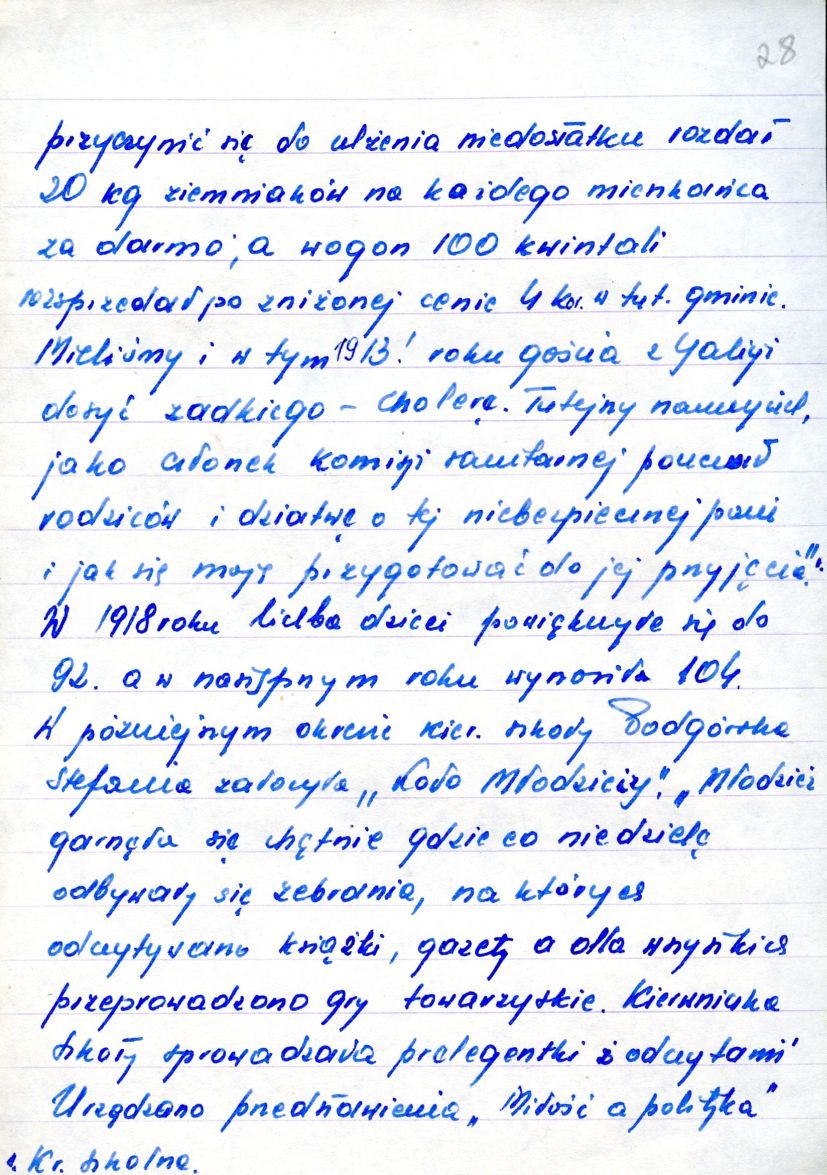 28
przyczynić się do ulżenia niedostatku rozdał
20 kg ziemniaków na każdego mieszkańca
za darmo, a wogon 100 kwintali
rozsprzedał po zniżonej cenie 4 kor. w tut. gminie.
Mieliśmy i w tym 1913! roku gościa z Galicji
dosyć rzadkiego – cholerę. Tutejszy nauczyciel,
jako członek komisji sanitarnej pouczał
rodziców i dziatwę o tej niebezpiecznej pani
i jak się mają przygotować do jej przyjęcia".¹
W 1918 roku liczba dzieci powiększyła się do
92. a w następnym roku wynosiła 104.
W późniejszym okresie kier. szkoły Podgórska
Stefania założyła „Koło Młodzieży". „Młodzież
garnęła się chętnie gdzie co niedzielę
odbywały się zebrania, na których
odczytywano książki, gazety a dla wszystkich
przeprowadzono gry towarzyskie. Kierowniczka
szkoły sprowadzała prelegentki z odczytami
Urządzano przedstawienia „Miłość a polityka"
1. Kr. szkolna.